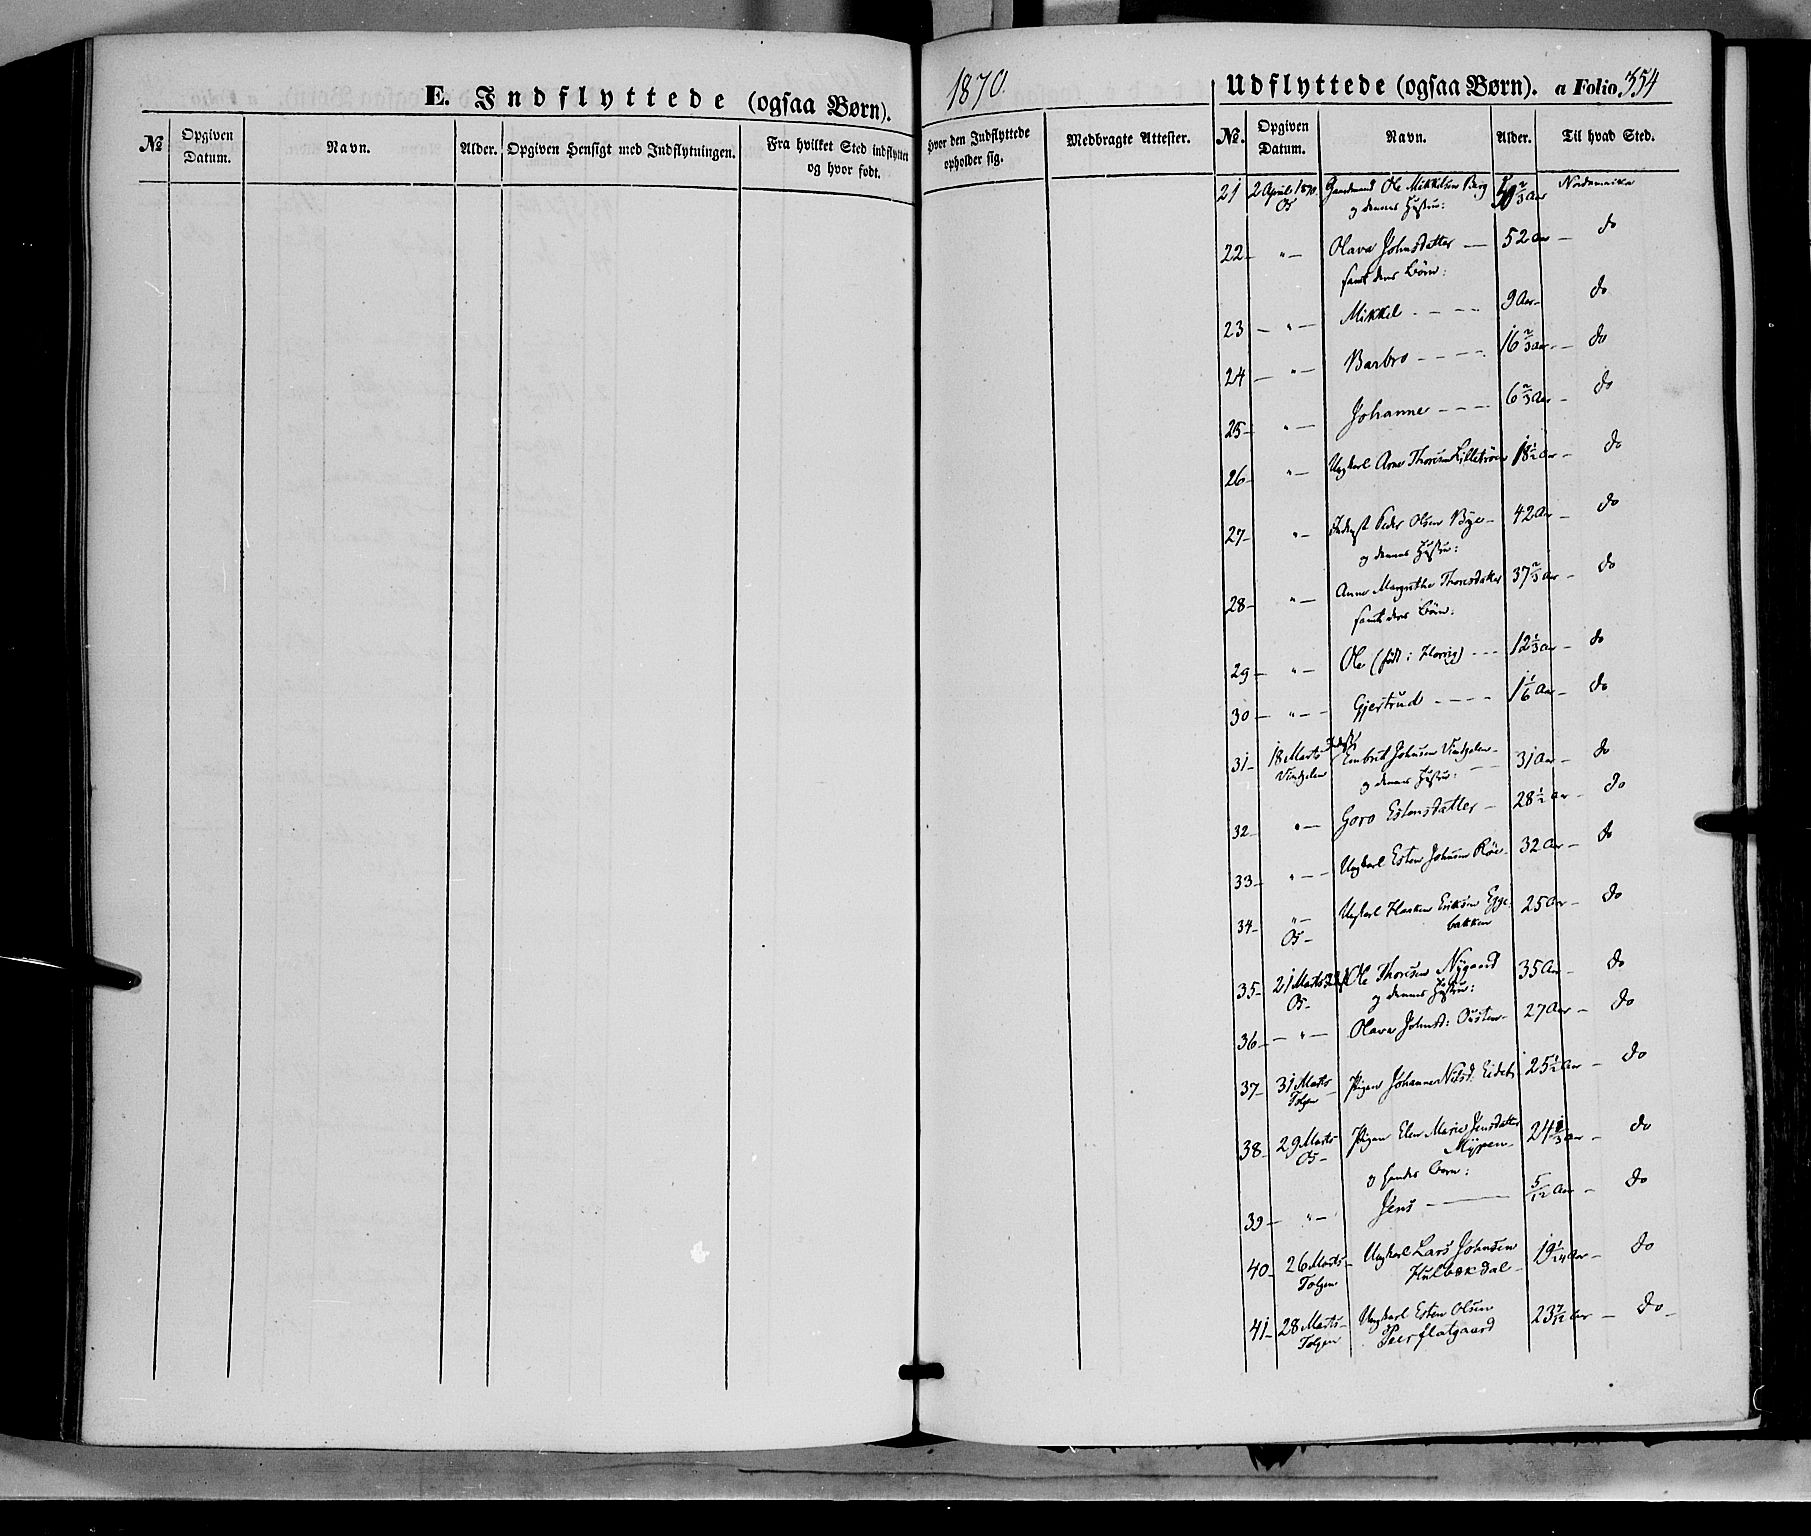 E. Indflyttede (ogsaa Børn).
1870.
Udflyttede (ogsaa Børn). a Folio 354
№ Opgiven Datum. Navn. Alder. Opgiven Hensigt med Indflytningen. Fra hvilket Sted indflyttet og hvor født. Hvor den Indflyttede opholder sig. Medbragte Attester. №. Opgiven Datum. Navn. Alder. Til hvad Sted.
21 2 April 1870. Gaardmand Ole Mikkelsen Berg Nordamerika
Os og dennes Hustru: 2/3 Aar
22 - " - Olava Johnsdatter - 52 Aar - do
samt deres Børn:
23 - " - Mikkel - - - - 9 Aar - do
24 - " - Barbro - - - - 16 2/3 Aar - do
25 - " - Johanne - - - 6 2/3 Aar - do
26 - " - Ungkarl Arne Thoresen Lilletrøen 18 1/2 Aar - do
27 - " - Inderst Peder Olsen Bye - 42 Aar - do
og dennes Hustru:
28 - " - Anne Margrethe Thoresdatter 37 2/3 Aar - do
samt deres Børn:
29 - " - Ole (født i Horrig) - - - 12 1/3 Aar - do
30 - " - Gjertrud - - - - 1 1/6 Aar - do
31 - 18 Marts Inderst Embrit Johnsen Vintjelen - 31 Aar - do
Vintjelen og dennes Hustru:
32 - " - Goro Estensdatter - 28 1/2 Aar - do
33 - " - Ungkarl Esten Johnsen Røe - 32 Aar - do
34 - " - Ungkarl Haaken Eriksen Egge- 25 Aar - do
Os - bakken
35 - 21 Marts Ole Thoresen Nygaard 35 Aar - do
Os - og dennes Hustru:
36 - " - Olava Johnsd: Ousten - 27 Aar - do
37 - 31 Marts Pigen Johanne Nilsd: Eidet 25 1/2 Aar - do
Tolgen
38 - 29 Marts - Pigen Elen Marie Jensdatter 24 1/3 Aar - do
Os - Myren -
og hendes Barn:
39 - " - Jens - 5/12 Aar - do
40 - 26 Marts - Ungkarl Lars Johnsen 19 1/24 Aar - do
Tolgen Hulbækdal -
41 - 28 Marts - Ungkarl Esten Olsen 23 7/12 Aar - do -
Tolgen